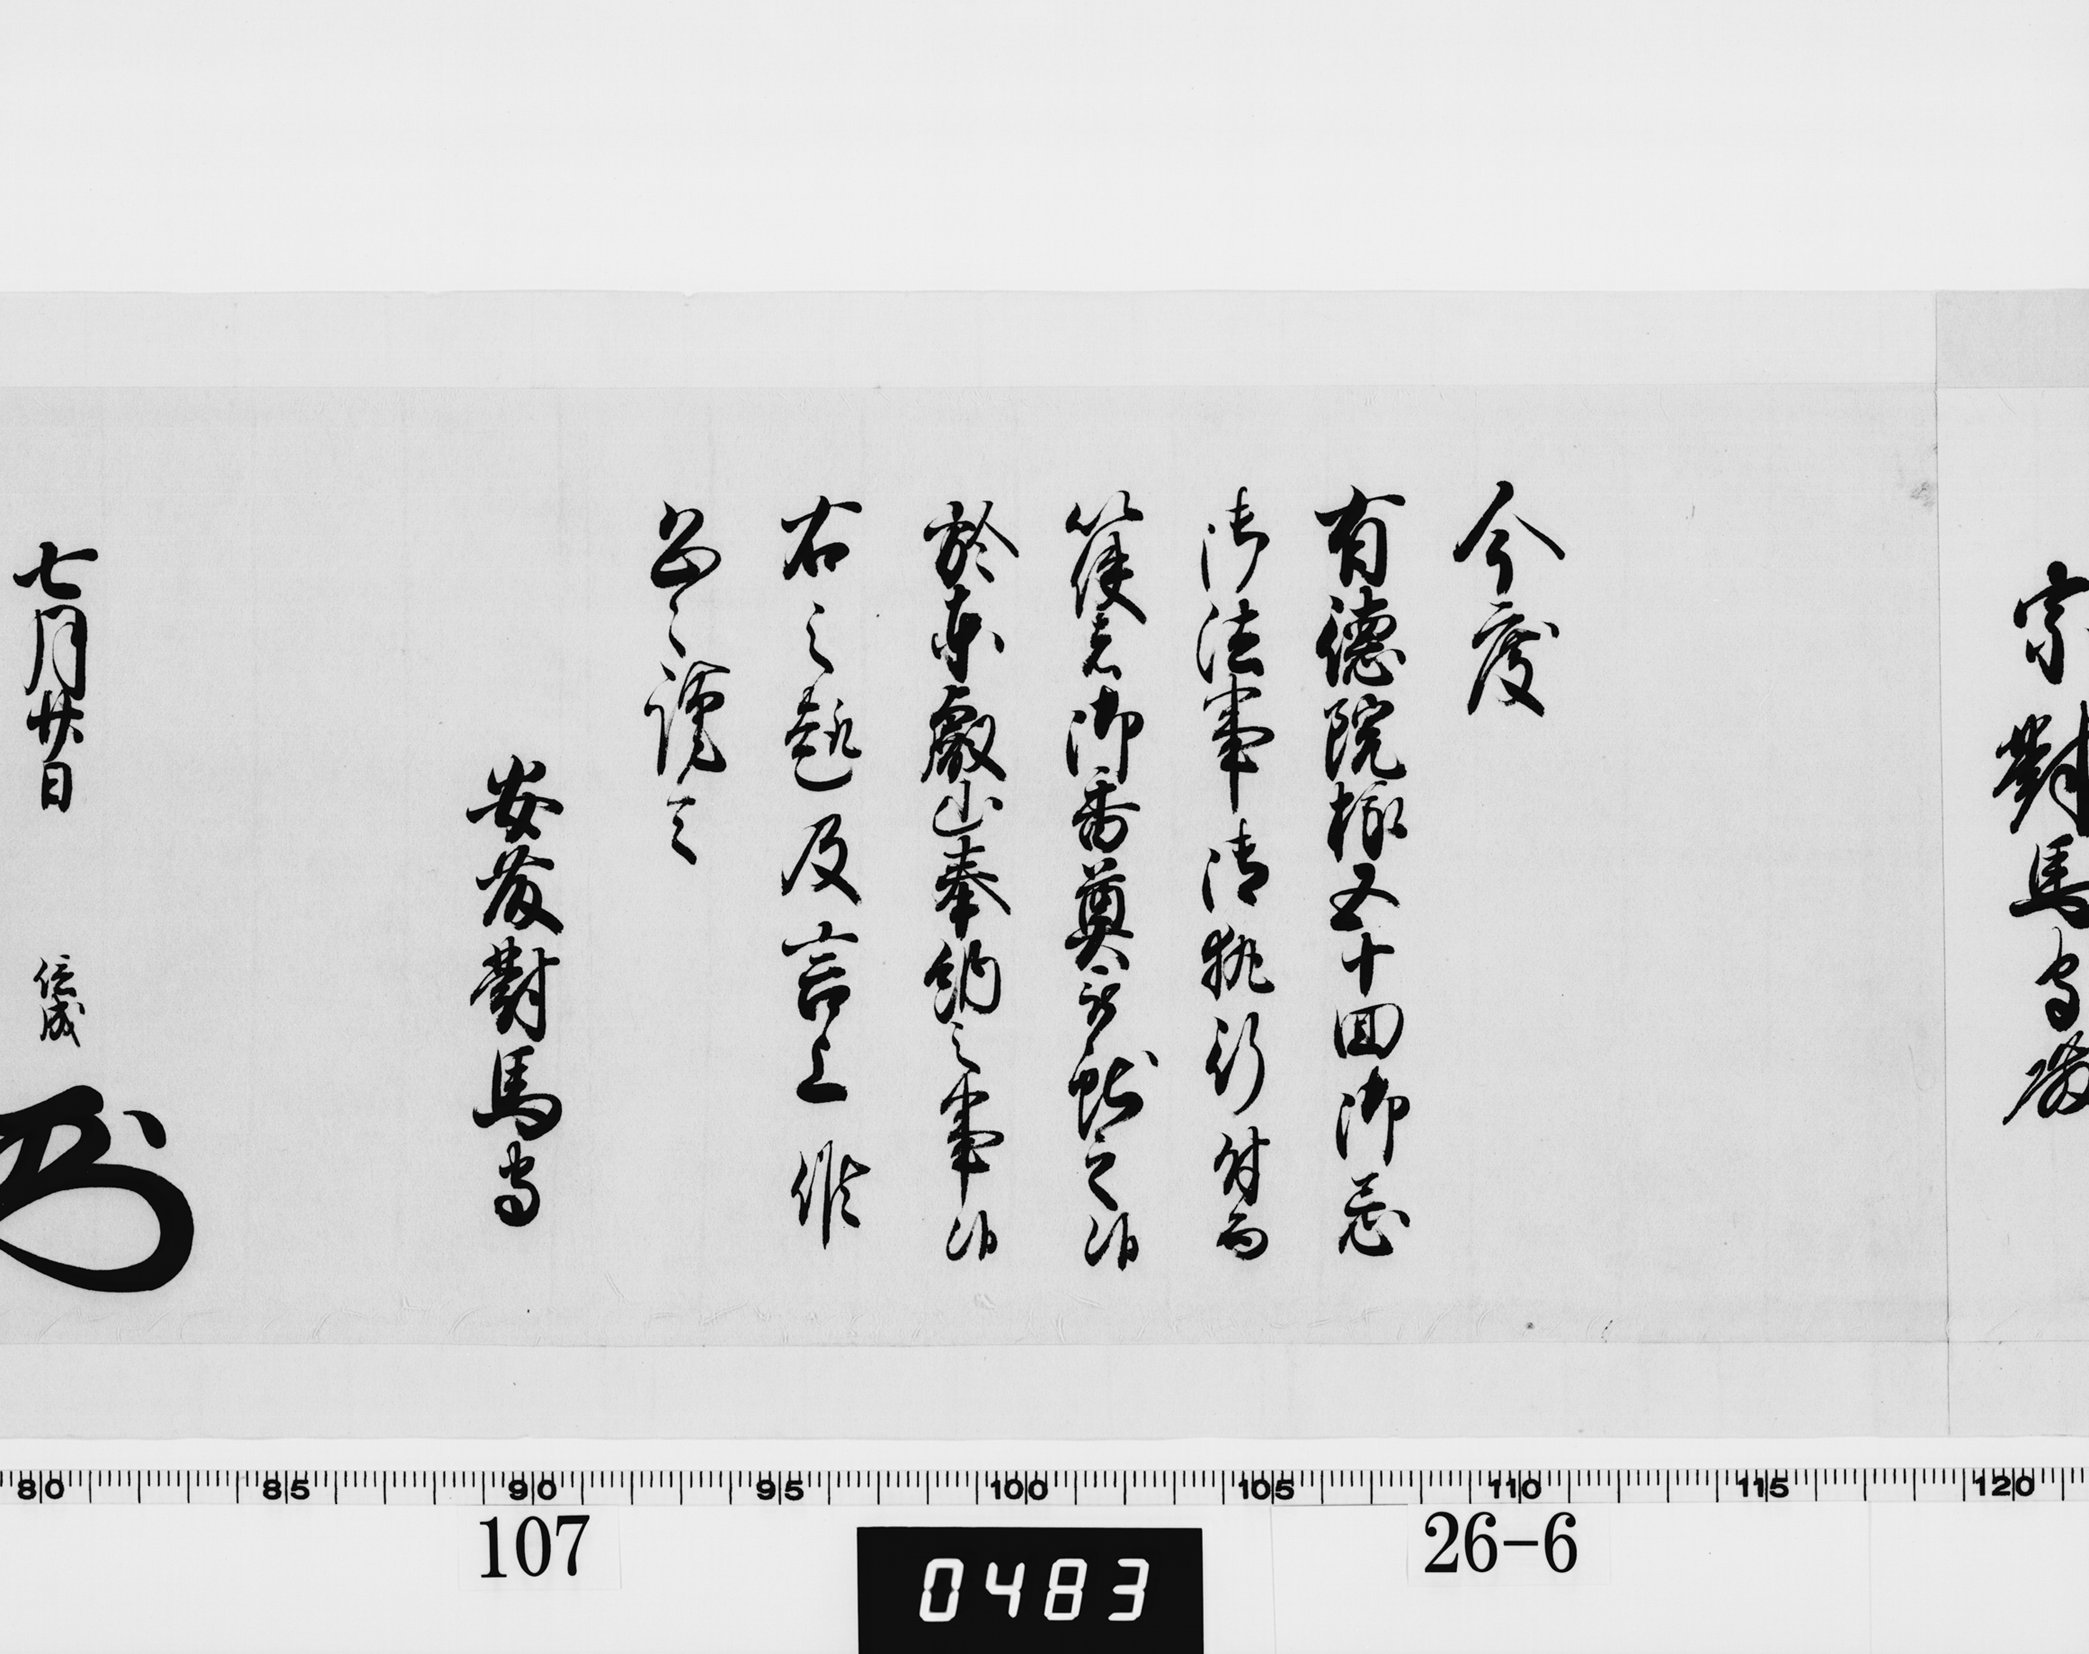 宗對馬守殿
今度
有徳院様五十回御忌
御法事御執行付而
以使者御香奠被献之則
於東叡山奉納之事則
右之趣及言上候
恐々謹言
安藤對馬守
七月廿日 信成
80 85 90 95 100 105 110 115 120
107 0483 26-6